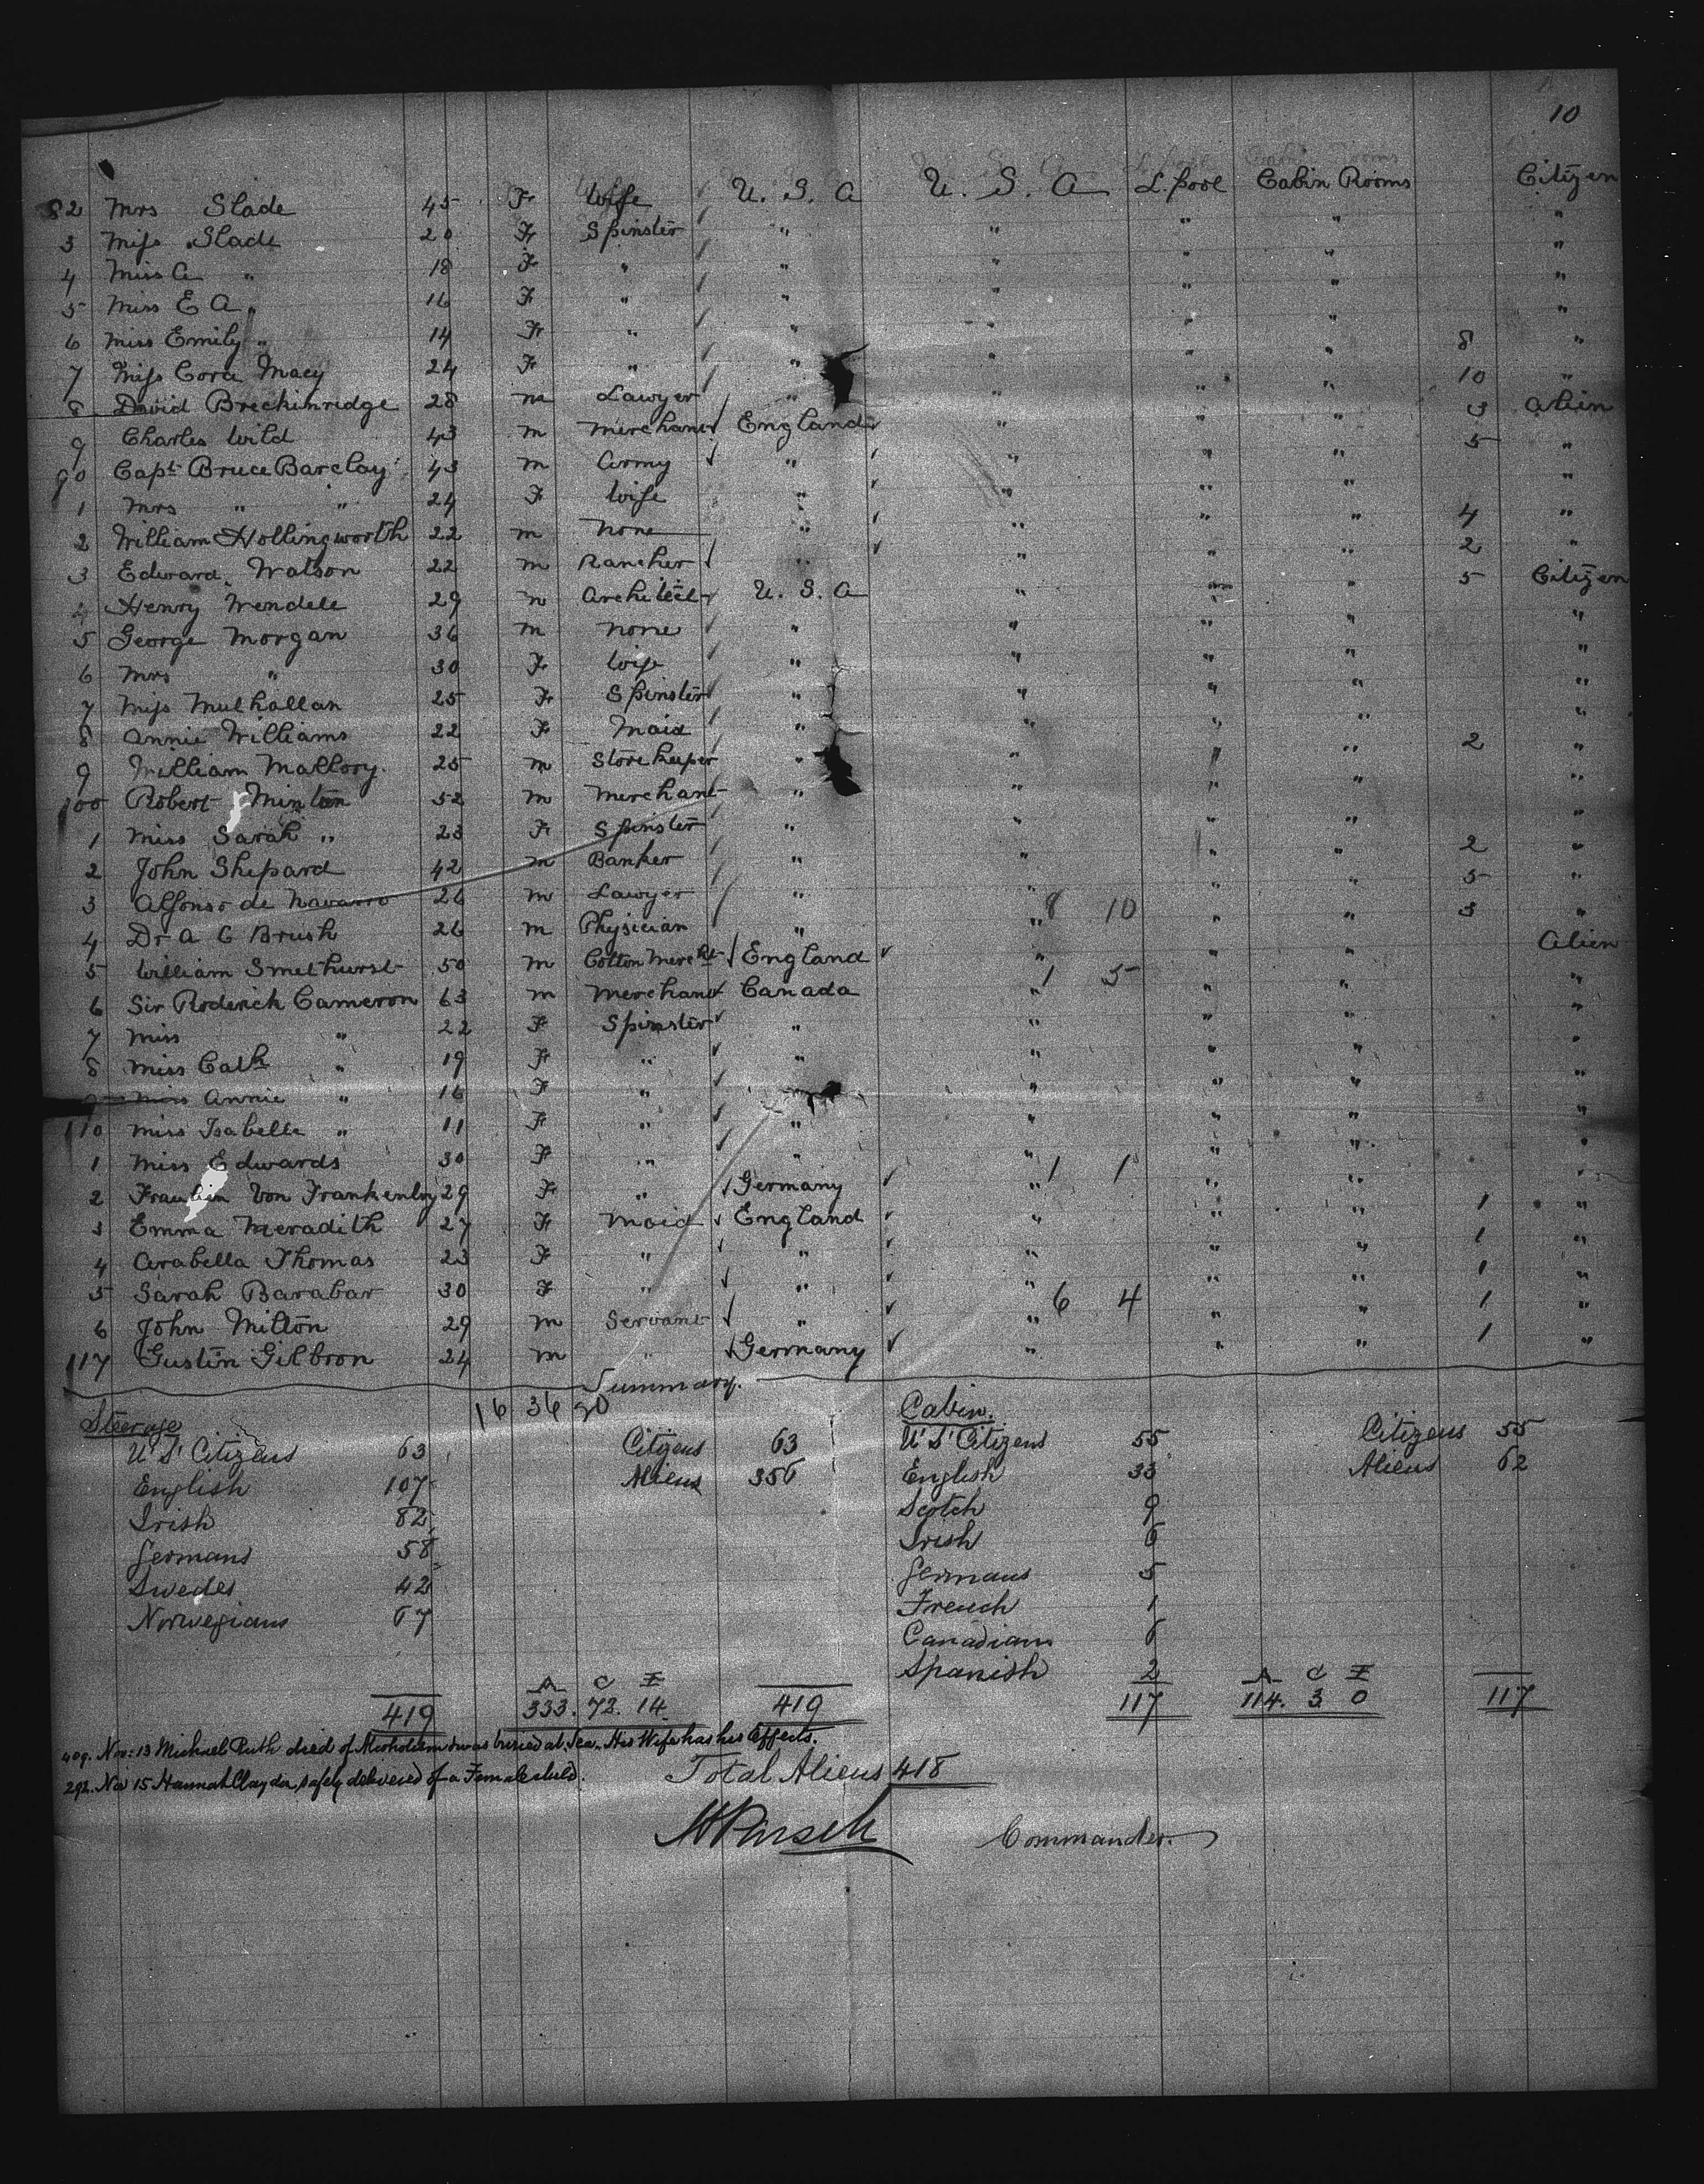 10
82 Mrs Slade 45 F Wife U. S. A U. S. A L.pool Cabin Rooms Citizen
3 Miss Slade 20 F Spinster " " " " "
4 Miss A " 18 F " " " " " "
5 Miss E A " 16 F " " " " " "
6 Miss Emily " 14 F " " " " " 8 "
7 Miss Cora Macy 24 F " " " " " 10 "
8 David Breckinridge 28 m Lawyer " " " " 3 Alien
9 Charles Wild 43 m Merchant England " " " 5 "
90 Capt Bruce Barclay 43 m Army " " " " "
1 Mrs " " 24 F Wife " " " " 4 "
2 William Hollingworth 22 m None " " " " 2 "
3 Edward Watson 22 m Rancher " " " " 5 Citizen
4 Henry Wendell 29 m Architect U. S. A " " " "
5 George Morgan 36 m None " " " " "
6 Mrs " 30 F Wife " " " " "
7 Miss Mulhallan 25 F Spinster " " " " "
8 Annie Williams 22 F Maid " " " " 2 "
9 William Mallory 25 m Storekeeper " " " "
100 Robert Minton 52 m Merchant " " " " "
1 Miss Sarah " 23 F Spinster " " " " 2 "
2 John Shepard 42 m Banker " " " " 5 "
3 Alfonso de Navarro 26 m Lawyer " " 8 10 " " 3 "
4 Dr A C Brush 26 m Physician " " " " Alien
5 William Smethurst 50 m Cotton Mercht England " 1 5 " " "
6 Sir Roderick Cameron 63 m Merchant Canada " " " "
7 Miss " 22 F Spinster " " " " "
8 Miss Cath " 19 F " " " " " "
9 Miss Annie " 16 F " " " " " "
110 Miss Isabella " 11 F " " " " " "
1 Miss Edwards 30 F " " " 1 1 " " "
2 Fraulein Von Frankenby 29 F " Germany " " " 1 "
3 Emma Meradith 27 F Maid England " " " 1 "
4 Arabella Thomas 23 F " " " " " 1 "
5 Sarah Barabar 30 F " " " 6 4 " " 1 "
6 John Milton 29 m Servant " " " " 1 "
117 Gustin Gilbron 24 m " Germany " " "
Summary.
16 36 20
Steerage Cabin.
U S Citizens 63 Citizens 63 U S Citizens 55 Citizens 55
English 107 Aliens 356 English 33 Aliens 62
Irish 82 Scotch 9
Germans 58 Irish 6
Swedes 42 Germans 5
Norwegians 67 French 1
Canadians 6
Spanish 2
A C I A C I
419 333. 72. 14. 419 117 114. 3 0 117
409. Nov: 13 Michael Ruth died of Alcoholism & was buried at Sea. His Wife has his Effects.
292. Nov 15 Hannah Clayden safely delivered of a Female child.
Total Aliens 418
Commander.